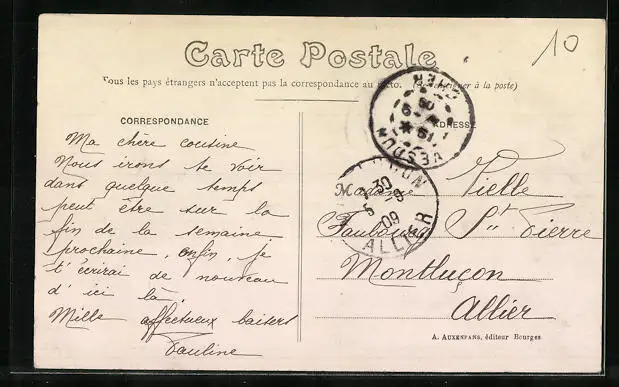 10
Carte Postale
Tous les pays étrangers n'acceptent pas la correspondance au recto. (Se renseigner à la poste)
CORRESPONDANCE
ADRESSE
Ma chère cousine
Nous irons te voir
dans quelque temps
peut être sur la
fin de la semaine
prochaine, enfin, je
t'écrirai de nouveau
d'ici là.
Mille affectueux baisers
Pauline
CHER
09
VESDUN
30
5 -8
09
ALLIER
Madame Vielle
Faubourg St Pierre
Montluçon
Allier
A. AUXENFANS, éditeur Bourges